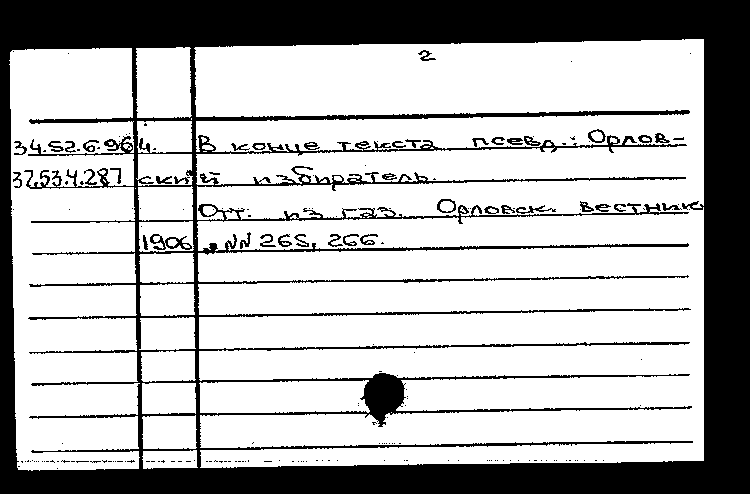 2
34.52.6.964. В конце текста псевд.: Орлов-
37.53.4.287 ский избиратель.
Отт. из газ. Орловск. вестник
1906, NN 265, 266.